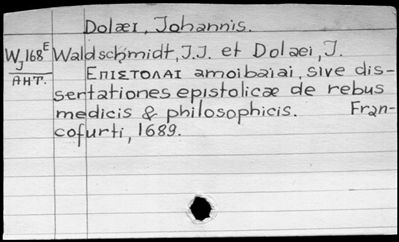 Dolæi, Johannis.
W,168ᴱ Waldschmidt, J.J. et Dolaei, J.
J
AHT. Επιστολαι amoibaiai, sive dis-
sertationes epistolicæ de rebus
medicis & philosophicis. Fran-
cofurti, 1689.